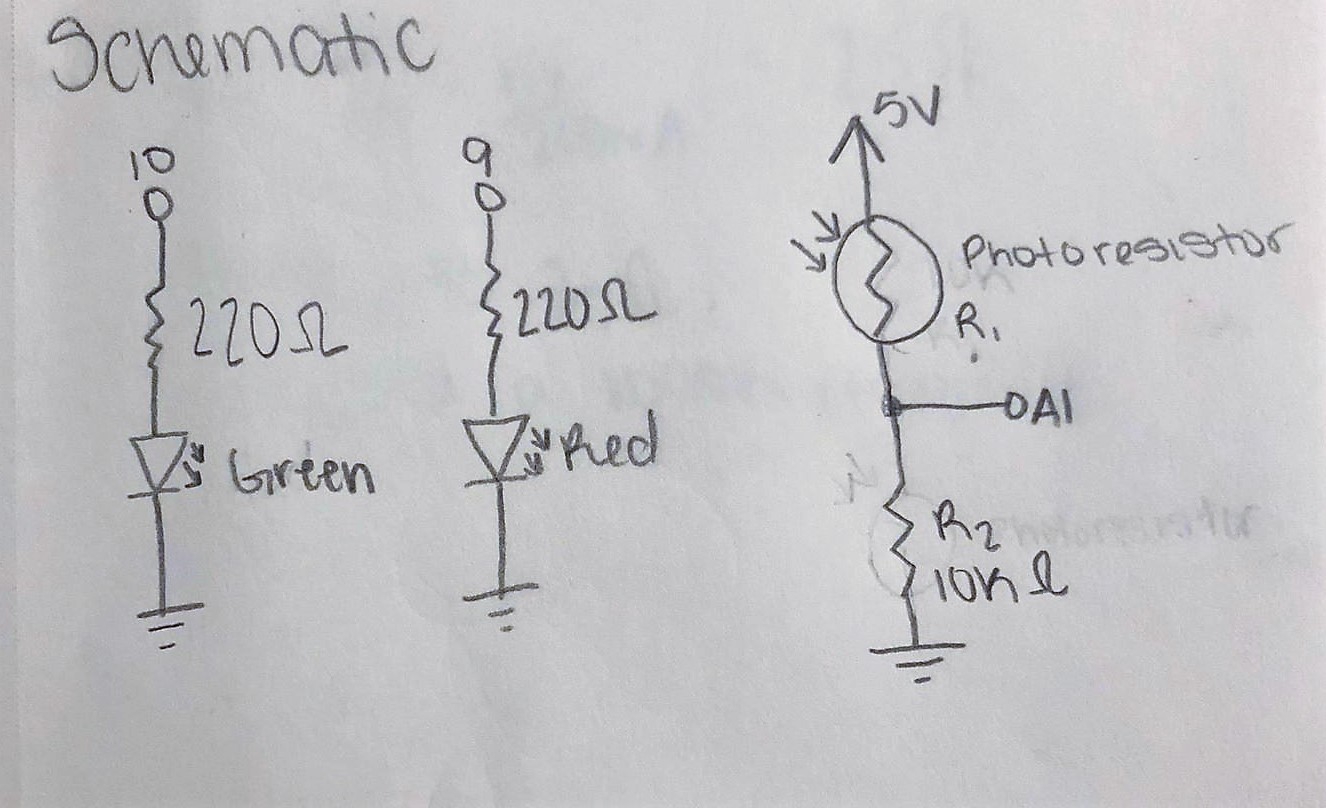 Schematic
10
220Ω
Green
9
220Ω
Red
5V
Photoresistor
R1
A1
R2
10KΩ